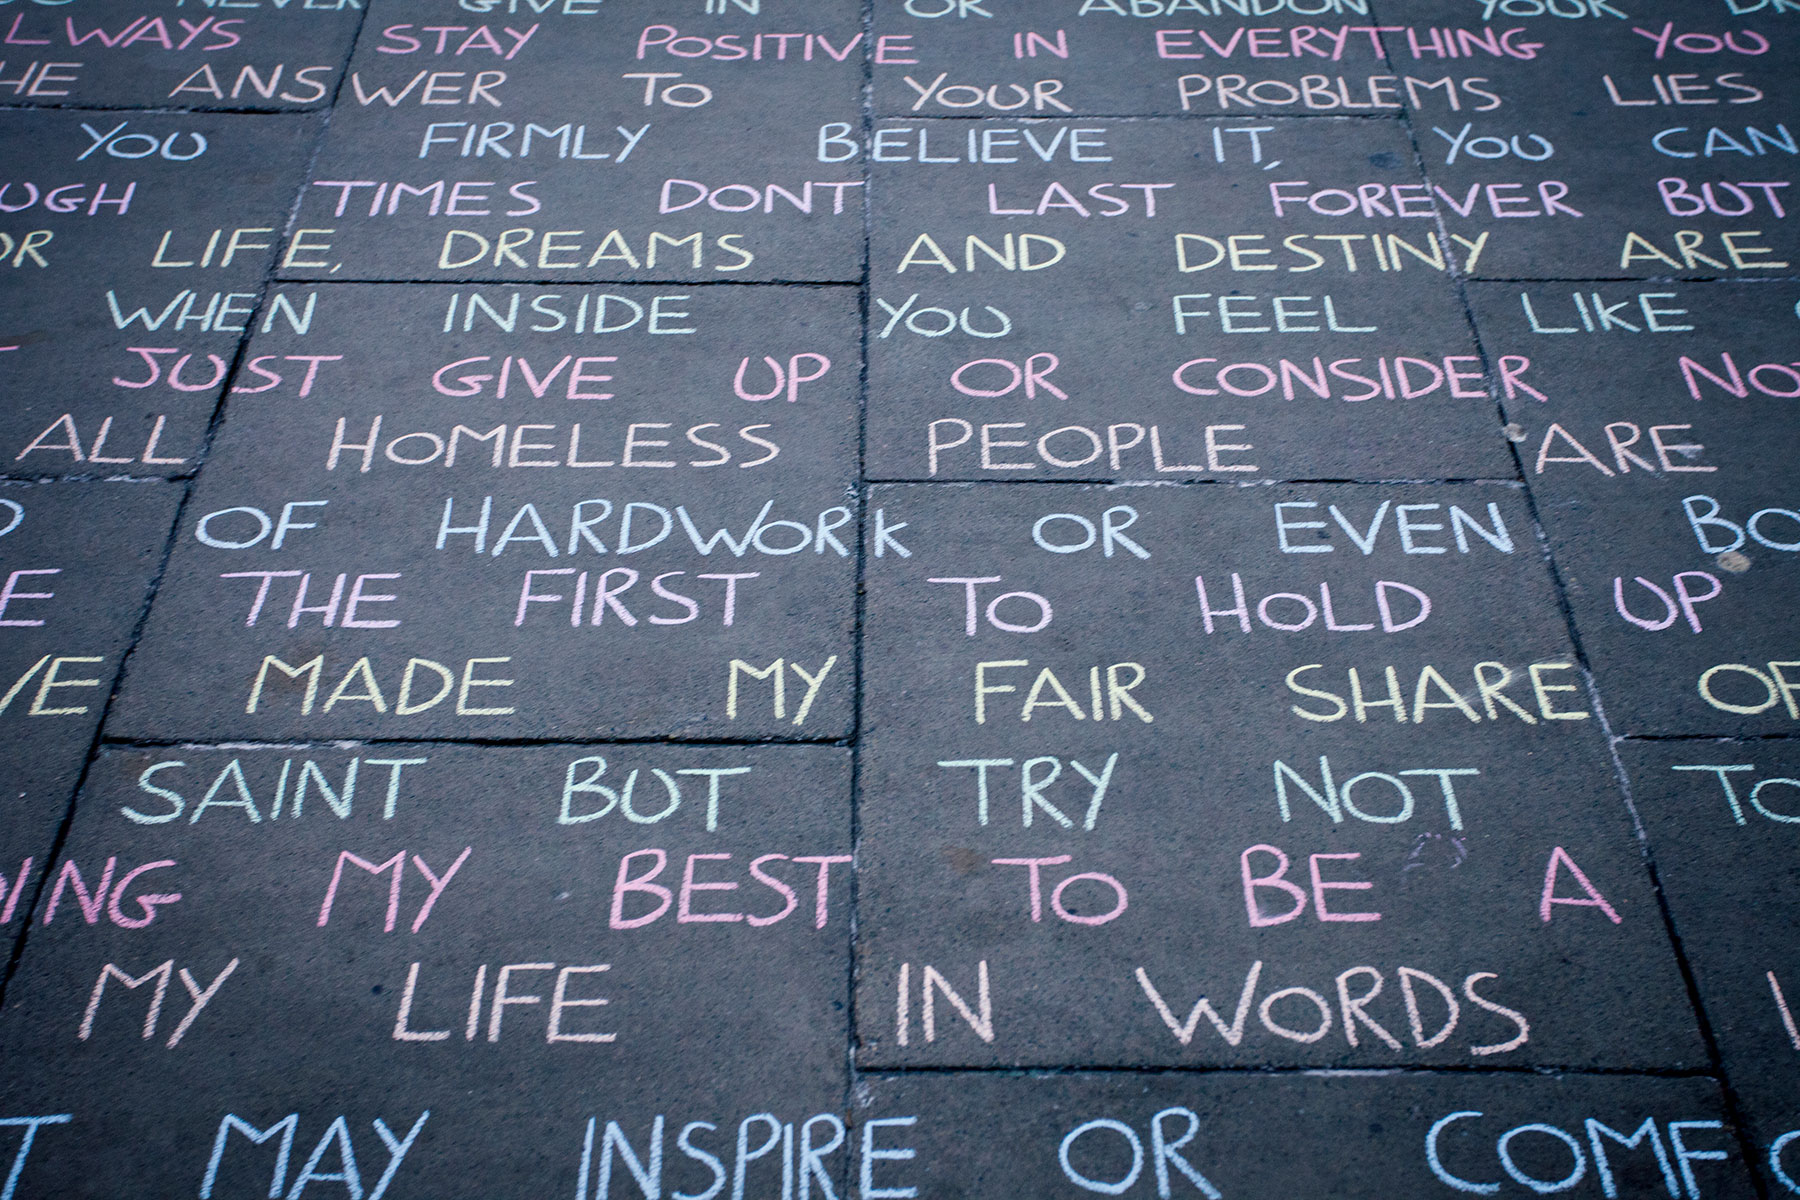 NEVER GIVE IN OR ABANDON YOUR
ALWAYS STAY POSITIVE IN EVERYTHING YOU
HE ANSWER TO YOUR PROBLEMS LIES
YOU FIRMLY BELIEVE IT, YOU CAN
UGH TIMES DONT LAST FOREVER BUT
OR LIFE, DREAMS AND DESTINY ARE
WHEN INSIDE YOU FEEL LIKE
JUST GIVE UP OR CONSIDER NO
ALL HOMELESS PEOPLE ARE
OF HARDWORK OR EVEN BO
E THE FIRST TO HOLD UP
VE MADE MY FAIR SHARE OF
SAINT BUT TRY NOT TO
ING MY BEST TO BE A
MY LIFE IN WORDS
T MAY INSPIRE OR COMFO